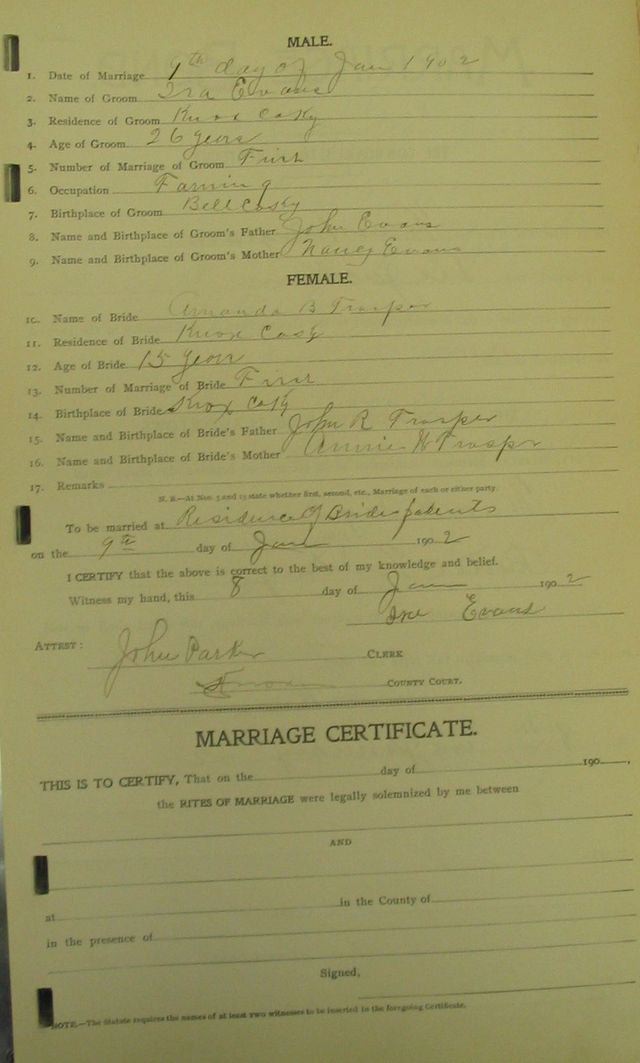 MALE.
1. Date of Marriage 9th day of Jan 1902
2. Name of Groom Ira Evans
3. Residence of Groom Knox Co Ky
4. Age of Groom 26 years
5. Number of Marriage of Groom First
6. Occupation Farming
7. Birthplace of Groom Bell Co Ky
8. Name and Birthplace of Groom's Father John Evans
9. Name and Birthplace of Groom's Mother Nancy Evans
FEMALE.
10. Name of Bride Amanda B Trosper
11. Residence of Bride Knox Co Ky
12. Age of Bride 15 years
13. Number of Marriage of Bride First
14. Birthplace of Bride Knox Co Ky
15. Name and Birthplace of Bride's Father John R Trosper
16. Name and Birthplace of Bride's Mother Annie Trosper
17. Remarks
N. B.—At Nos. 5 and 13 state whether first, second, etc., Marriage of each or either party.
To be married at Residence of Brides parents
on the 9th day of Jan 1902
I CERTIFY that the above is correct to the best of my knowledge and belief.
Witness my hand, this 8 day of Jan 1902
Ira Evans
ATTEST: John Parker CLERK
Knox COUNTY COURT.
MARRIAGE CERTIFICATE.
THIS IS TO CERTIFY, That on the day of 190 ,
the RITES OF MARRIAGE were legally solemnized by me between
AND
at in the County of
in the presence of
Signed,
NOTE.—The Statute requires the names of at least two witnesses to be inserted in the foregoing Certificate.